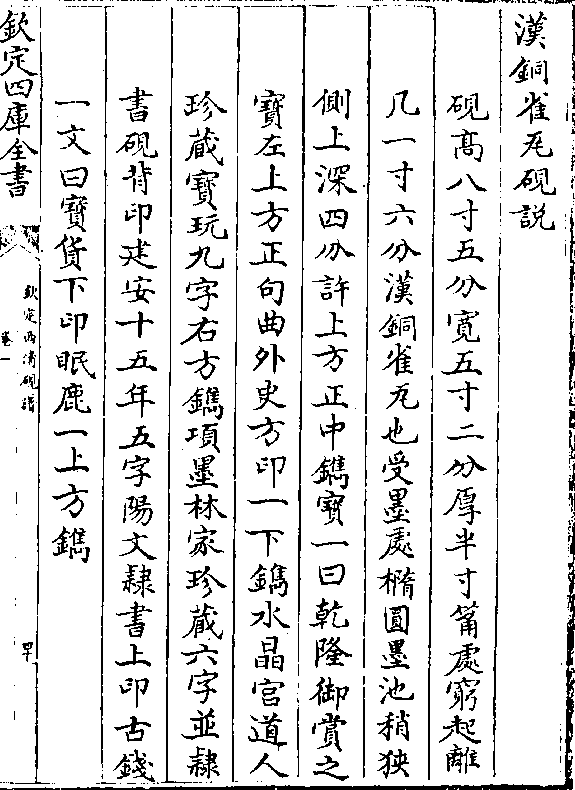 漢銅雀瓦硯說
硯高八寸五分寛五寸二分厚半寸篅處窮起離
几一寸六分漢銅雀瓦也受墨處橢圓墨池稍狹
側上深四分許上方正中鐫寶一曰乾隆御賞之
寶左上方正句曲外史方印一下鐫水晶宫道人
珍藏寶玩九字右方鐫項墨林家珍藏六字並隸
書硯背印建安十五年五字陽文隸書上印古錢
一文曰寶貨下印眠鹿一上方鐫
欽定四庫全書
欽定西清硯譜
卷一